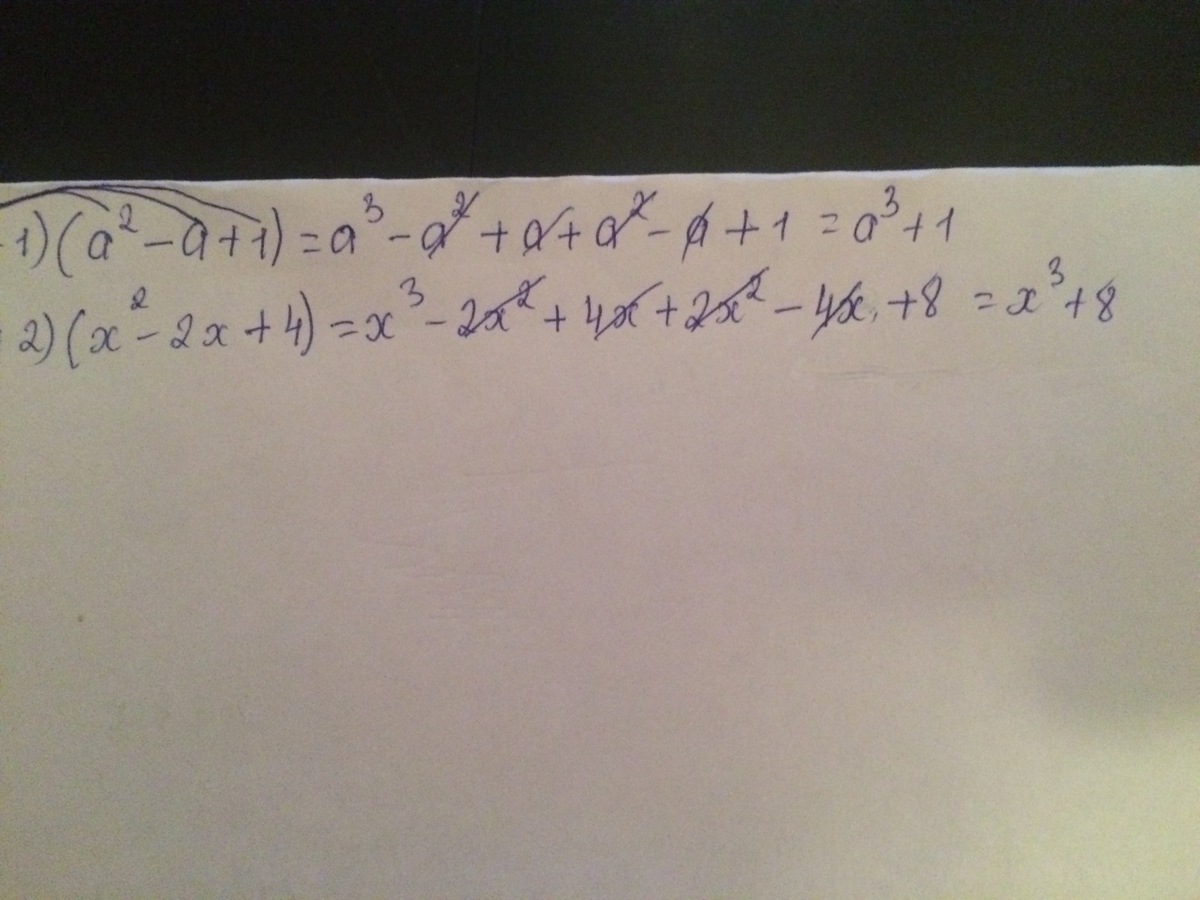 1)(a² - a + 1) = a³ - a² + a + a² - a + 1 = a³ + 1
2)(x² - 2x + 4) = x³ - 2x² + 4x + 2x² - 4x + 8 = x³ + 8